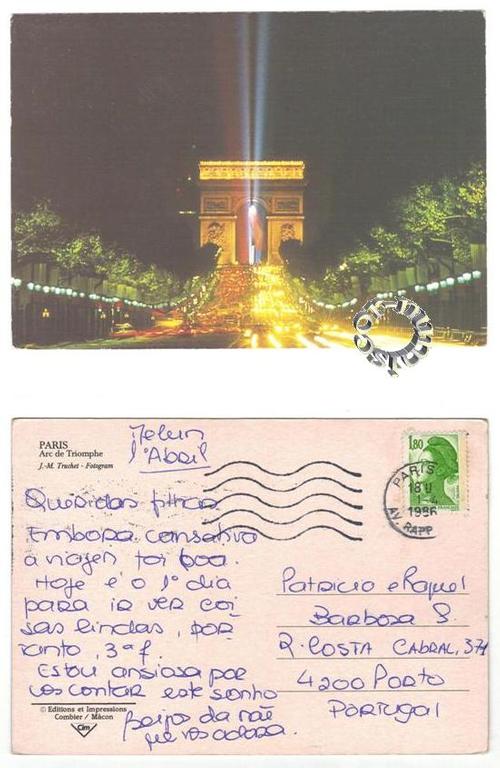 PARIS
Arc de Triomphe
J.-M. Truchet - Fotogram
Melun
1º Abril
Queridos filhos
Embora cansativa
a viagem foi boa.
Hoje é o 1º dia
para ir ver coi
sas lindas, por
tanto, 3ª f.
Estou ansiosa por
vos contar este sonho
beijos da mãe
que vos adora.
© Editions et Impressions
Combier / Mâcon
Cim
1,80
PARIS
18 H
1-4
1986
AV. RAPP
Patricio e Raquel
Barbosa S.
R. COSTA CABRAL, 371
4200 PORTO
PORTUgal